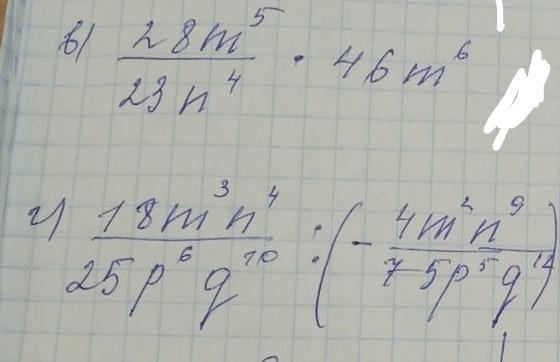 в) 28m⁵ / 23n⁴ · 46m⁶
г) 18m³n⁴ / 25p⁶q¹⁰ : (− 4m²n⁹ / 75p⁵q¹²)